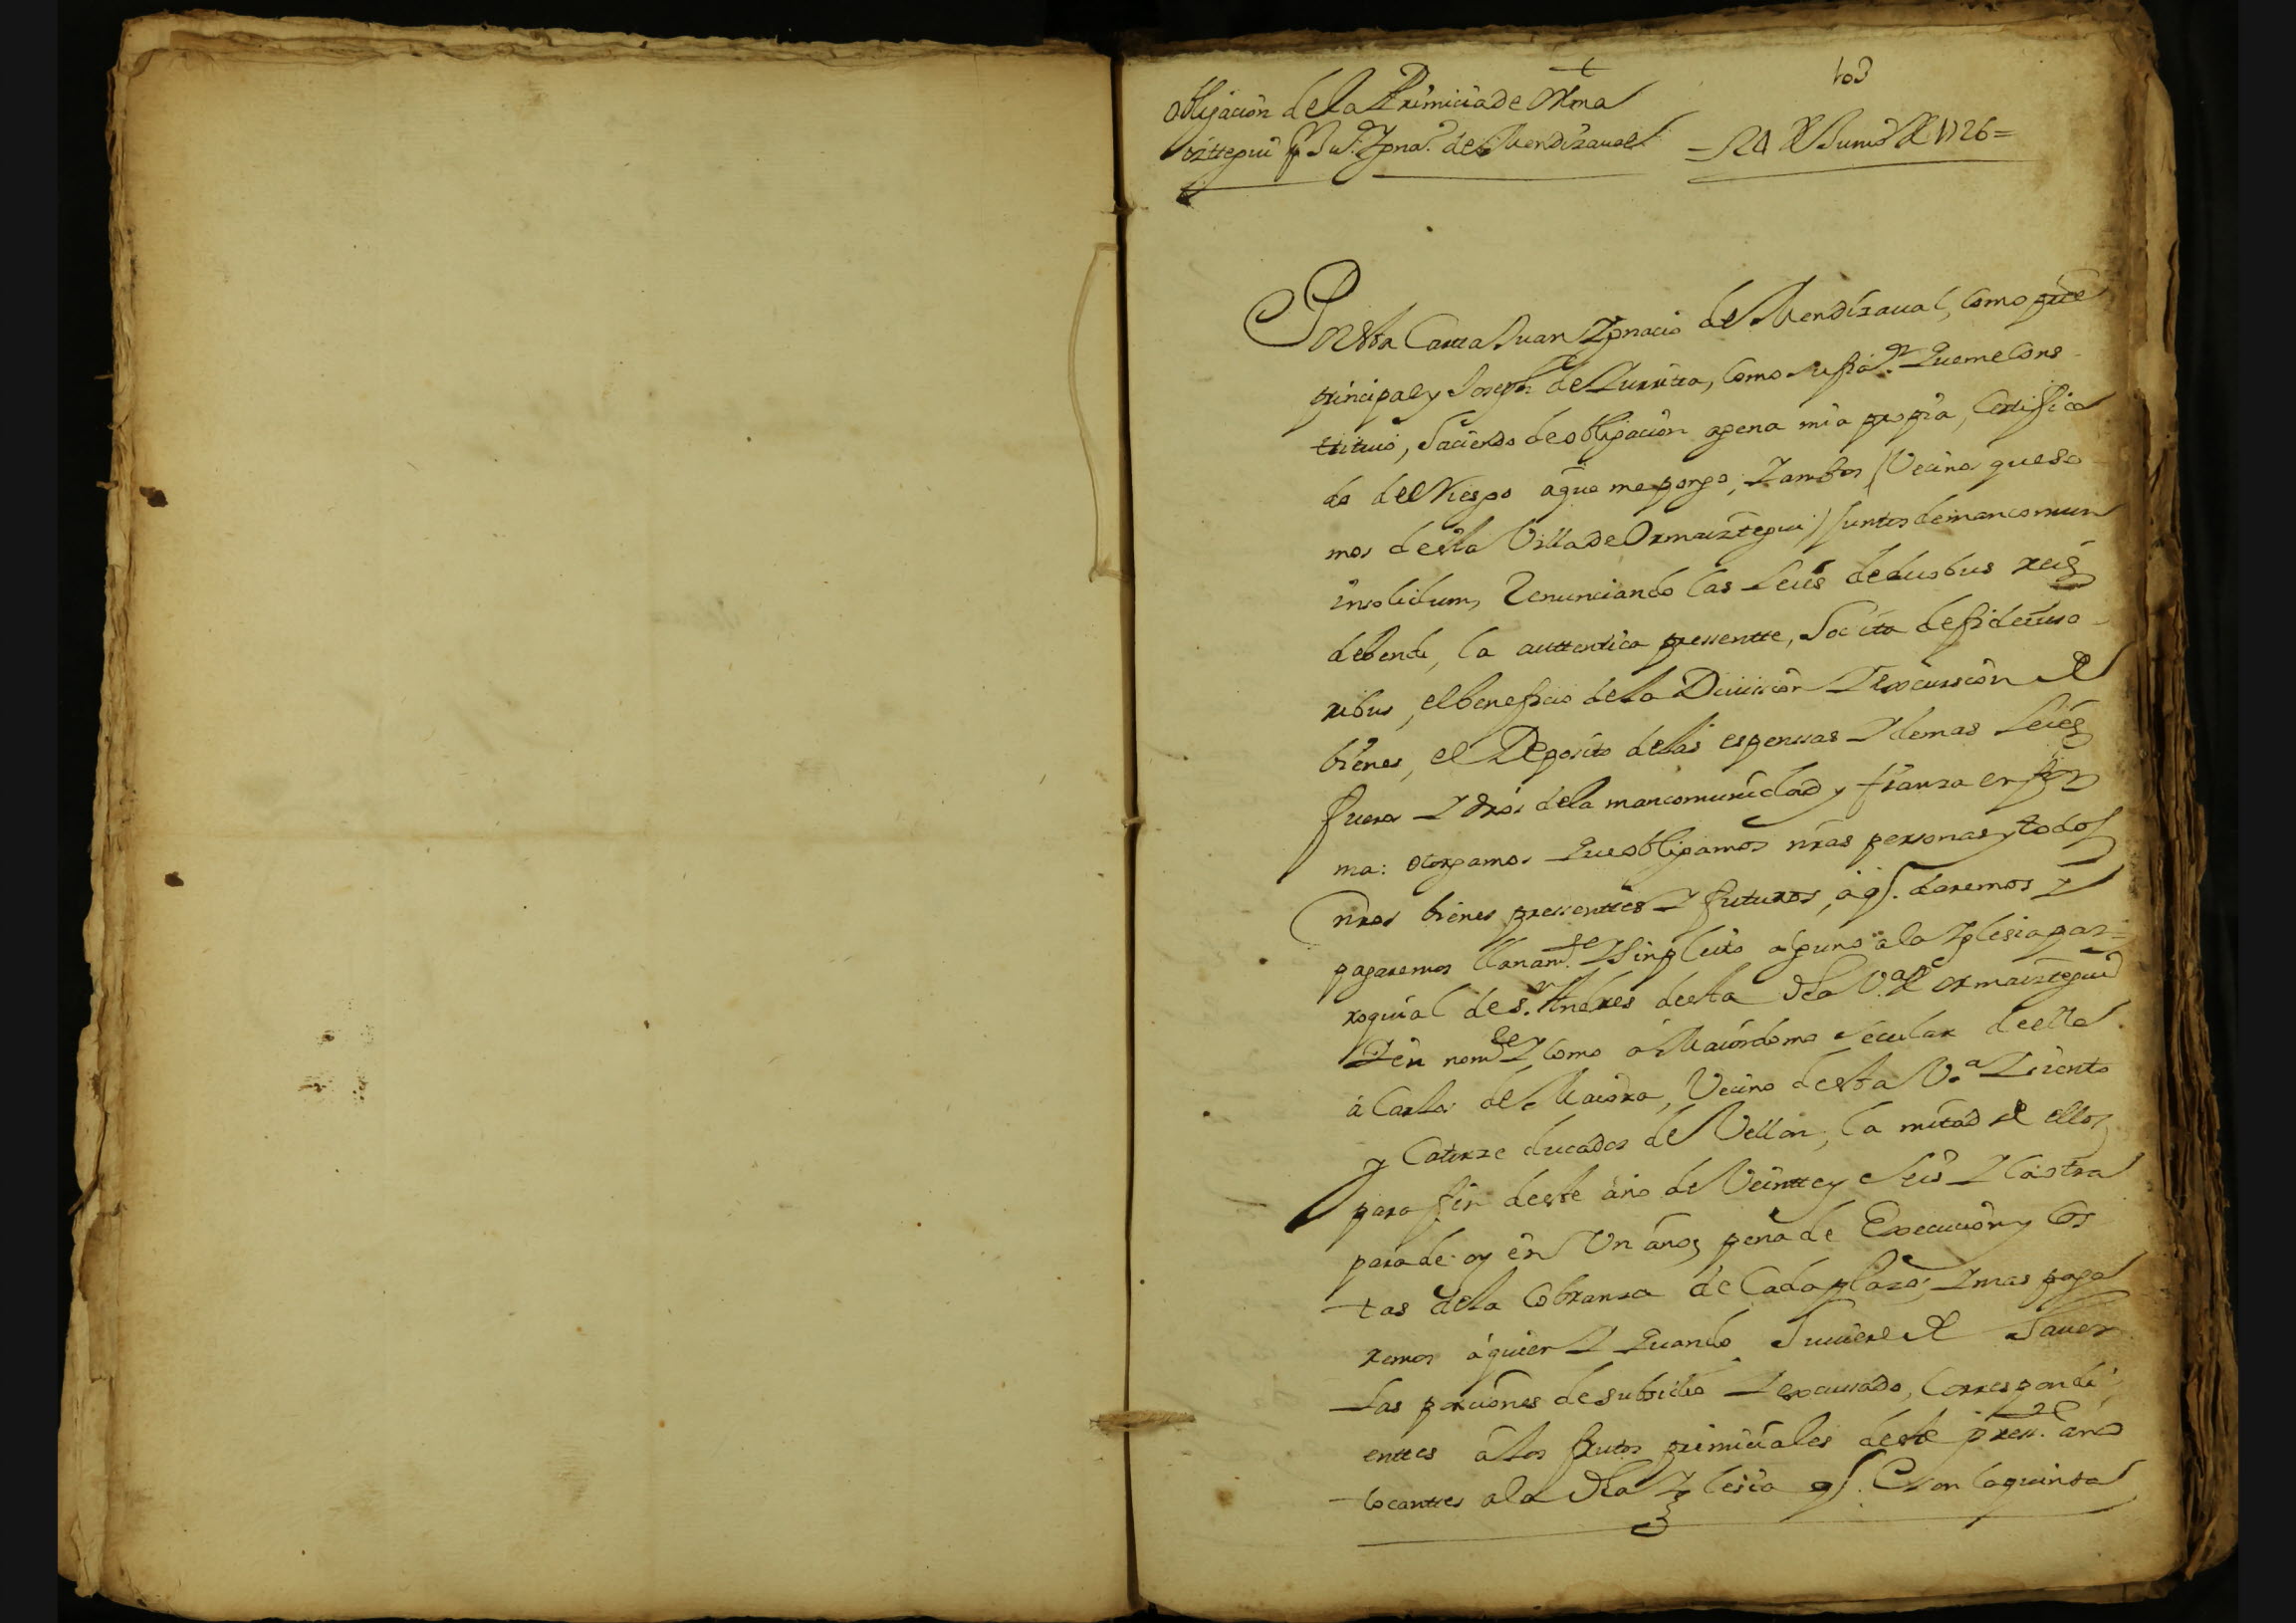 103
obligacion de la Primicia de Orma
iztegui p.r Ju.o Ygna.o de Mendizaual
24 de Junio de 1726=
Por esta Carta Juan Ygnacio de Mendizaual, como
principal y Joseph de Zurutra, como su fia.or Que me Cons
tituio, Saciendo de obligacion agena mia propia, Certifica
do del Riesgo aque me pongo, Y ambos (Vecinos que so
mos desta Villa de Ormaiztegui) Juntos de mancomun
insolidum, Renunciando las Leies de duobus reis
debendi, la auttentica pressentte, Hoc ita de fideiuso
ribus, el beneficio de la Diuission Y excussion de
bienes, el Deposito de las espenssas Y demas Leies
fueros Y dros de la mancomunidad y fianza en for
ma: otorgamos Que obligamos nras personas y todos
nros bienes pressenttes Y futuros, a q. daremos Y
pagaremos llanam.te Y sin pleito alguno a la Yglesia par=
roquial de S.n Andres desta dha V.a de ormaiztegui
Y en nom.e Y como a Maiordomo secular de ella
a Carlos de Maiora, Vecino desta V.a Ziento
y Catorze ducados de Vellon, la mitad de ellos
para fin deste año de Veintte y Seis Y la otra
para de oy en Un año, pena de Execucion y Cos
tas de la Cobranza de Cada plazo; Y mas paga
remos a quien Y Quando Tuuiere de Hauer
las porciones de subsidio Y excussado, Correspondi
enttes a los frutos primiciales deste press.te año
tocanttes a la dha Yglesia q. Con la quinta